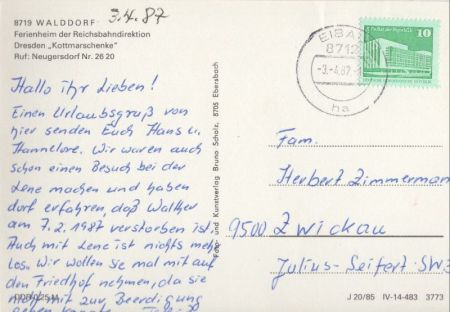 8719 WALDDORF
3.4.87
Ferienheim der Reichsbahndirektion
Dresden „Kottmarschenke"
Ruf: Neugersdorf Nr. 26 20
Hallo ihr Lieben!
Einen Urlaubsgruß von
hier senden Euch Hans u.
Hannelore. Wir waren auch
schon einen Besuch bei der
Lene machen und haben
dort erfahren, daß Walther
am 7.2.1987 verstorben ist.
Auch mit Lene ist nichts mehr
los. Wir wollten sie mal mit auf
den Friedhof nehmen, da sie
nicht mit zur Beerdigung
Foto- und Kunstverlag Bruno Scholz, 8705 Ebersbach
EIBAU
8712
-3.-4.87.-
ha
10
Fam.
Herbert Zimmermann
9500 Zwickau
Julius-Seifert-Str.
J 20/85 IV-14-483 3773